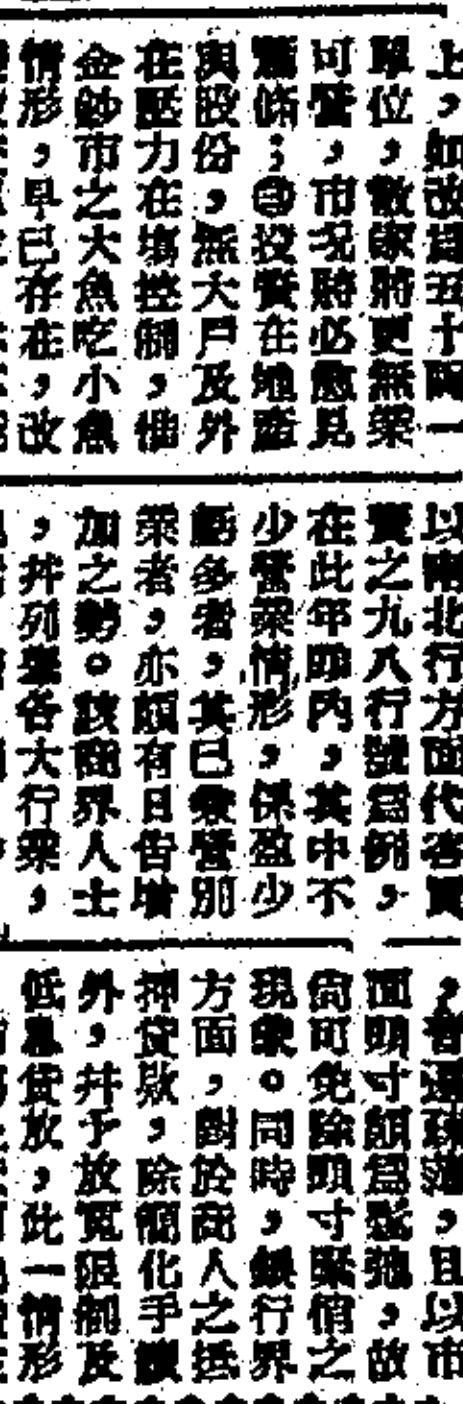 上，如改爲五十兩一
單位，散家將更無榮
可營，市况勢必愈見
蕭條；㊂投資在地產
與股份，無大戶及外
在壓力在塲控制，惟
金鈔市之大魚吃小魚
情形，早已存在，改
以南北行方面代客買
賣之九八行號爲例，
在此年頭內，其中不
少營業情形，係盈少
虧多者，其已兼營別
業者，亦頗有日告增
加之勢。該商界人士
，幷列舉各大行業，
，普遍疎落，且以市
面明寸頗爲鬆弛，故
尙可免除頭寸緊俏之
現象。同時，銀行界
方面，對於商人之抵
押貸款，除簡化手續
外，幷予放寬限制及
低息貸放，此一情形